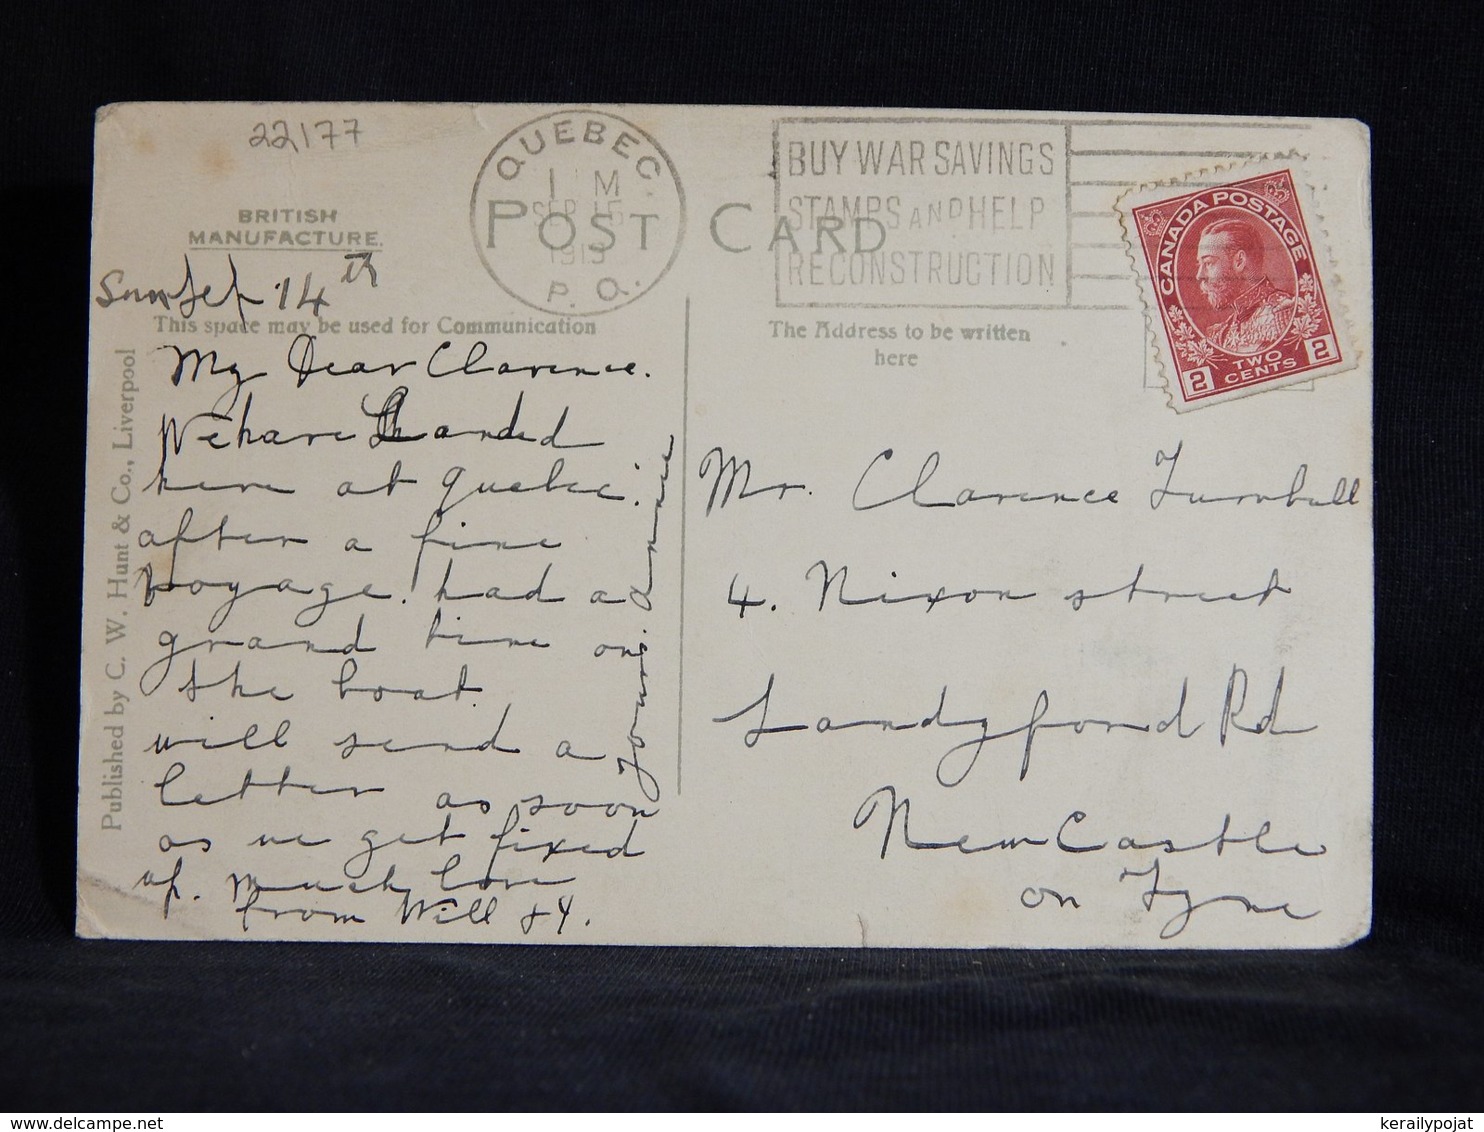 22177
BRITISH
MANUFACTURE.
QUEBEC
M
SEP 15
1919
P. Q.
BUY WAR SAVINGS
STAMPS AND HELP
RECONSTRUCTION
POST CARD
CANADA POSTAGE
2 TWO CENTS 2
14th
This space may be used for Communication
The Address to be written
here
Published by C. W. Hunt & Co., Liverpool
My Dear Clarence.
We have Landed
here at Quebec.
after a fine
voyage. had a
grand time on
the boat.
will send a
letter as soon
as we get fixed
up. Much love
from Will
Mr. Clarence Turnbull
4. Nixon street
Sandyford Rd
NewCastle
on Tyne
kerailypojat